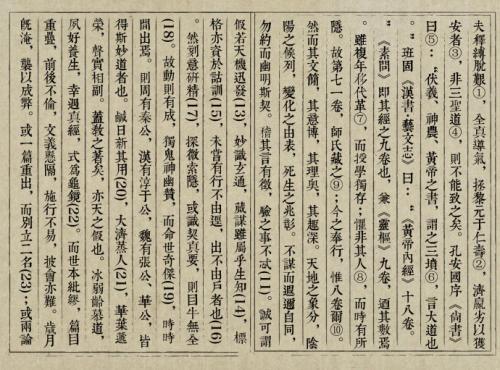 夫釋縛脫艱①，全真導氣，拯黎元于仁壽②，濟羸劣以獲
安者③，非三聖道④，則不能致之矣。孔安國序《尚書》
曰⑤："伏義、神農、黃帝之書，謂之三墳⑥，言大道也
。"班固《漢書·藝文志》曰："《黃帝內經》十八卷。
"《素問》即其經之九卷也，兼《靈樞》九卷，迺其數焉
。雖複年移代革⑦，而授學獨存；懼非其人⑧，而時有所
隱。故第七一卷，師氏藏之⑨；今之奉行，惟八卷爾⑩。
然而其文簡，其意博，其理奧，其趣深。天地之象分，陰
陽之候列，變化之由表，死生之兆彰。不謀而遐邇自同，
勿約而幽明斯契。稽其言有徵，驗之事不忒(11)。誠可謂
假若天機迅發(13)，妙識玄通，蕆謀雖屬乎生知(14)，標
格亦資於詁訓(15)，未嘗有行不由逕，出不由戶者也(16)
。然刻意研精(17)，探微索隱，或識契真要，則目牛無全
(18)。故動則有成，獨鬼神幽贊，而命世奇傑(19)，時時
間出焉。則周有秦公，漢有淳于公，魏有張公、華公，皆
得斯妙道者也。鹹日新其用(20)，大濟蒸人(21)，華葉遞
榮，聲實相副。蓋教之著矣，亦天之假也。冰弱齡慕道，
夙好養生，幸遇真經，式為龜鏡(22)。而世本紕繆，篇目
重疊，前後不倫，文義懸隔，施行不易，披會亦難。歲月
既淹，襲以成弊。或一篇重出，而別立二名(23)；或兩論